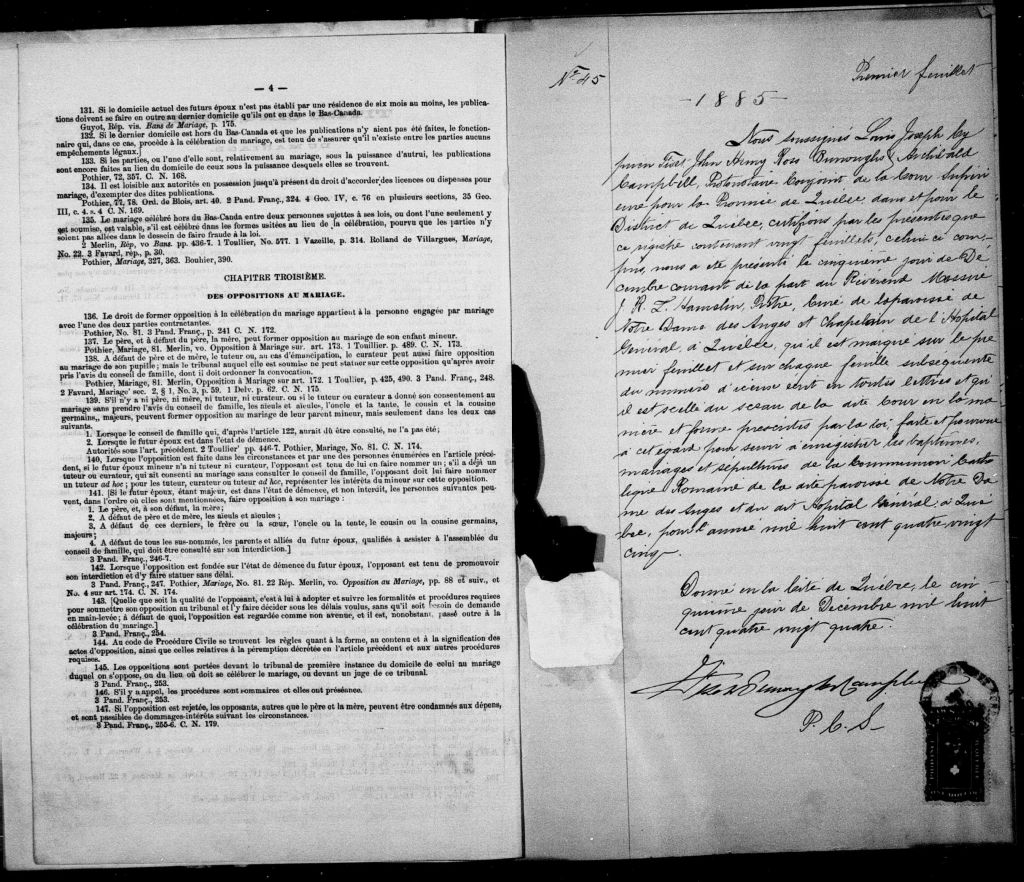 — 4 —
131. Si le domicile actuel des futurs époux n'est pas établi par une résidence de six mois au moins, les publica-
tions doivent se faire en outre au dernier domicile qu'ils ont en dans le Bas-Canada.
Guyot, Rép. vis. Bans de Mariage, p. 175.
132. Si le dernier domicile est hors du Bas-Canada et que les publications n'y aient pas été faites, le fonction-
naire qui, dans ce cas, procède à la célébration du mariage, est tenu de s'assurer qu'il n'existe entre les parties aucuns
empêchements légaux.]
133. Si les parties, ou l'une d'elle sont, relativement au mariage, sous la puissance d'autrui, les publications
sont encore faites au lieu du domicile de ceux sous la puissance desquels elles se trouvent.
Pothier, 72, 357. C. N. 168.
134. Il est loisible aux autorités en possession jusqu'à présent du droit d'accorder des licences ou dispenses pour
mariage, d'exempter des dites publications.
Pothier, 77, 78. Ord. de Blois, art. 40. 2 Pand. Franç., 324. 4 Geo. IV, c. 76 en plusieurs sections, 35 Geo.
III, c. 4. s. 4 C. N. 169.
135. Le mariage célébré hors du Bas-Canda entre deux personnes sujettes à ses lois, ou dont l'une seulement y
est soumise, est valable, s'il est célébré dans les formes usitées au lieu de la célébration, pourvu que les parties n'y
soient pas allées dans le dessein de faire fraude à la loi.
2 Merlin, Rép, vo Bans. pp. 436-7. 1 Toullier, No. 577. 1 Vazeille, p. 314. Rolland de Villargues, Mariage,
No. 22. 3 Favard, rép., p. 30.
Pothier, Mariage, 327, 363. Bouhier, 390.
CHAPITRE TROISIÈME.
DES OPPOSITIONS AU MARIAGE.
136. Le droit de former opposition à la célébration du mariage appartient à la personne engagée par mariage
avec l'une des deux parties contractantes.
Pothier, No. 81. 3 Pand. Franç., p. 241 C. N. 172.
137. Le père, et à défaut du père, la mère, peut former opposition au mariage de son enfant mineur.
Pothier, Mariage, 81. Merlin, vo. Opposition à Mariage sur. art. 173. 1 Toullier, p. 489. C. N. 173.
138. A défaut de père et de mère, le tuteur ou, au cas d'émancipation, le curateur peut aussi faire opposition
au mariage de son pupille; mais le tribunal auquel elle est soumise ne peut statuer sur cette opposition qu'après avoir
pris l'avis du conseil de famille, dont il doit ordonner la convocation.
Pothier, Mariage, 81. Merlin, Opposition à Mariage sur art. 172. 1 Toullier, p. 425, 490. 3 Pand. Franç., 248.
2 Favard, Mariage' sec. 2, § 1, No. 3, p. 59. 1 Delv. p. 62. C. N. 175.
139. S'il n'y a ni père, ni mère, ni tuteur, ni curateur. ou si le tuteur ou curateur a donné son consentement au
mariage sans prendre l'avis du conseil de famille, les aïeuls et aïeules, l'oncle et la tante, le cousin et la cousine
germains, majeurs, peuvent former opposition au mariage de leur parent mineur, mais seulement dans les deux cas
suivants.
1. Lorsque le conseil de famille qui, d'après l'article 122, aurait dû être consulté, ne l'a pas été;
2. Lorsque le futur époux est dans l'état de démence.
Autorités sous l'art. précédent. 2 Toullier' pp. 446-7. Pothier, Mariage, No. 81. C. N. 174.
140. Lorsque l'opposition est faite dans ce circonstances et par une des personnes énumérées en l'article précé-
dent, si le futur époux mineur n'a ni tuteur ni curateur, l'opposant est tenu de lui en faire nommer un; s'il a déjà un
tuteur ou curateur, qui ait consenti au mariage sans consulter le conseil de famille, l'opposant doit lui faire nommer
un tuteur ad hoc; pour les tuteur, curateur ou tuteur ad hoc, représenter les intérêts du mineur sur cette opposition.
141. [Si le futur époux, étant majeur, est dans l'état de démence, et non interdit, les personnes suivantes peu-
vent, dans l'ordre où elles sont mentionnées, faire opposition à son mariage :
1. Le père, et, à son défaut, la mère;
2. A défaut de père et de mère, les aïeuls et aïeules ;
3. A défaut de ces derniers, le frère ou la sœur, l'oncle ou la tante, le cousin ou la cousine germains,
majeurs;
4. A défaut de tous les sus-nommés, les parents et alliés du futur époux, qualifiés à assister à l'assemblée du
conseil de famille, qui doit être consulté sur son interdiction.]
3 Pand. Franç., 246-7.
142. Lorsque l'opposition est fondée sur l'état de démence du futur époux, l'opposant est tenu de promouvoir
son interdiction et d'y faire statuer sans délai.
3 Pand. Franç., 247. Pothier, Mariage, No. 81. 22 Rép. Merlin, vo. Opposition au Mariage, pp. 88 et suiv., et
No. 4 sur art. 174. C. N. 174.
143. [Quelle que soit la qualité de l'opposant, c'est à lui à adopter et suivre les formalités et procédures requises
pour soumettre son opposition au tribunal et l'y faire décider sous les délais voulus, sans qu'il soit besoin de demande
en main-levée; à défaut de quoi, l'opposition est regardée comme non avenue, et il est, nonobstant, passé outre à la
célébration du mariage.]
3 Pand. Franç., 254.
144. Au code de Procédure Civile se trouvent les règles quant à la forme, au contenu et à la signification des
actes d'opposition, ainsi que celles relatives à la péremption décrétée en l'article précédent et aux autres procédures
requises.
145. Les oppositions sont portées devant le tribunal de première instance du domicile de celui au mariage
duquel on s'oppose, ou du lieu où doit se célébrer le mariage, ou devant un juge de ce tribunal.
3 Pand. Franç., 253.
146. S'il y a appel, les procédures sont sommaires et elles ont préséance.
3 Pand. Franç., 253.
147. Si l'opposition est rejetée, les opposants, autres que le père et la mère, peuvent être condamnés aux dépens,
et sont passibles de dommages-intérêts suivant les circonstances.
3 Pand. Franç., 255-6. C. N. 179.
No 45
Premier feuillet
- 1885 -
Nous soussignés Louis Joseph Cy
prien Fiset John Henry Ross Burroughs & Archibald
Campbell, Protonotaire Conjoint de la Cour Supéri
eure pour la Province de Québec, dans et pour le
District de Québec, certifions par les présentes que
ce registre contenant vingt feuillets, celui ci com-
pris, nous a été présenté le cinquième jour de Dé
cembre courant de la part du Révérend Messire
J. R. L. Hamelin, Prêtre, Curé de la paroisse de
Notre Dame des Anges et Chapelain de l'Hopital
Général, à Québec, qu'il est marqué sur le pre
mier feuillet et sur chaque feuille subséquente
du numéro d'iceux écrit en toutes lettres et qu'
il est scellé du sceau de la dite Cour en la ma
nière et forme prescrites par la loi, faite et pourvue
à cet égard pour servir à enregistrer les baptêmes,
mariages et sépultures de la Communion Catho
lique Romaine de la dite paroisse de Notre Da
me des Anges et du dit Hopital Général, à Qué
bec, pour l'année mil huit cent quatre vingt
cinq.
Donné en la Cité de Québec, le cin
quième jour de Decembre mil huit
cent quatre vingt quatre.
Fiset Burroughs Campbell
P. C. S